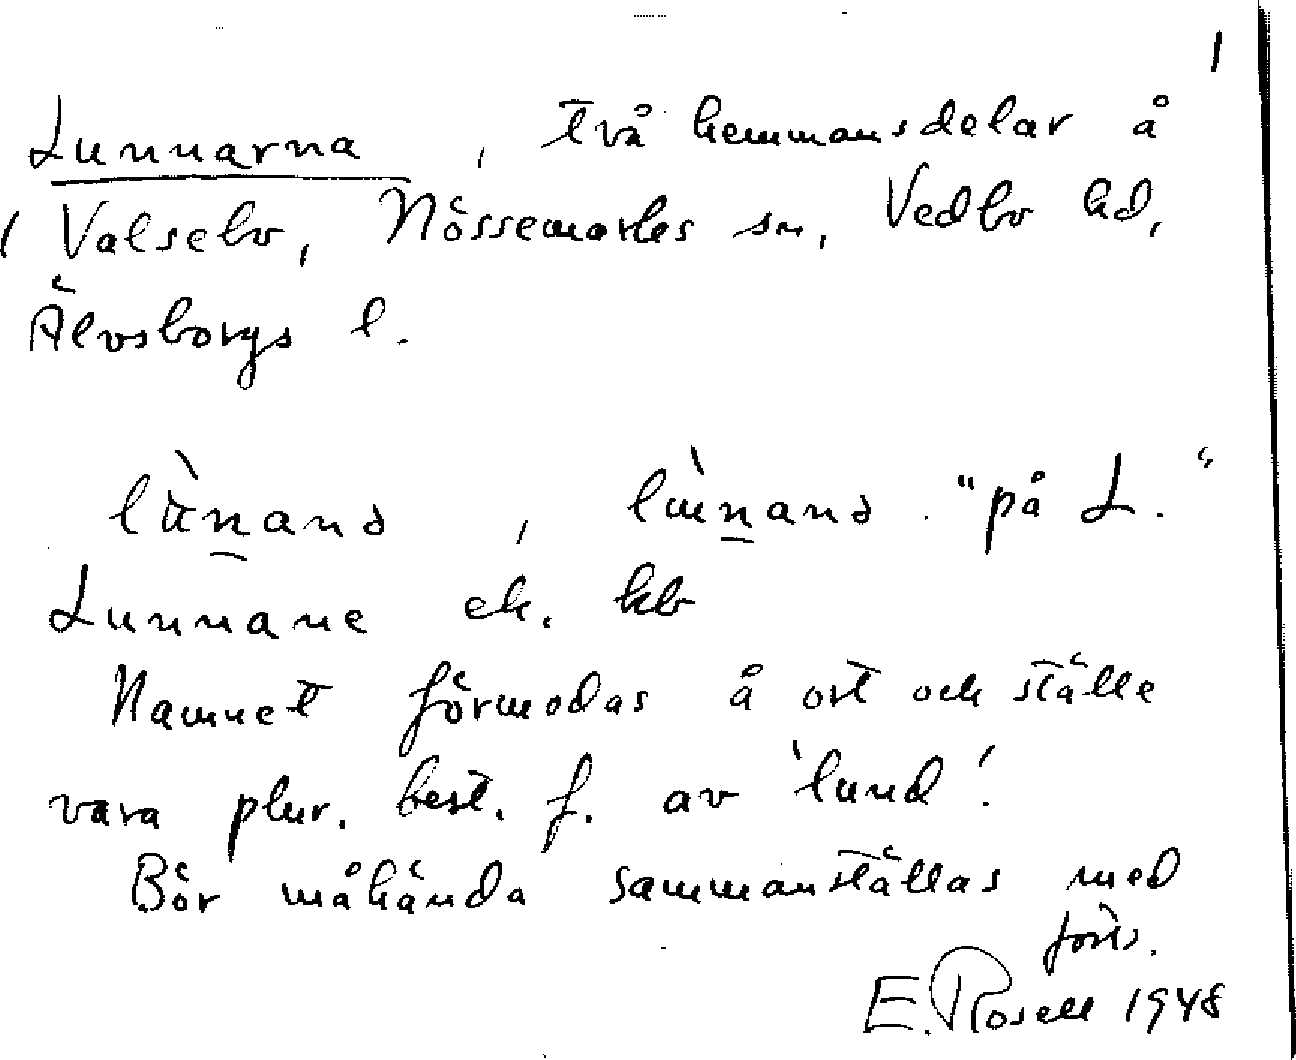 1
Lunnarna, två hemmansdelar å
Valsebo, Nössemarks sn, Vedbo hd,
Älvsborgs l.
lùnanə, lùnanə. "på L."
Lunnane ek. kb
Namnet förmodas å ort och ställe
vara plur. best. f. av 'lund'.
Bör måhända sammanställas med
forts.
E. Rosell 1948